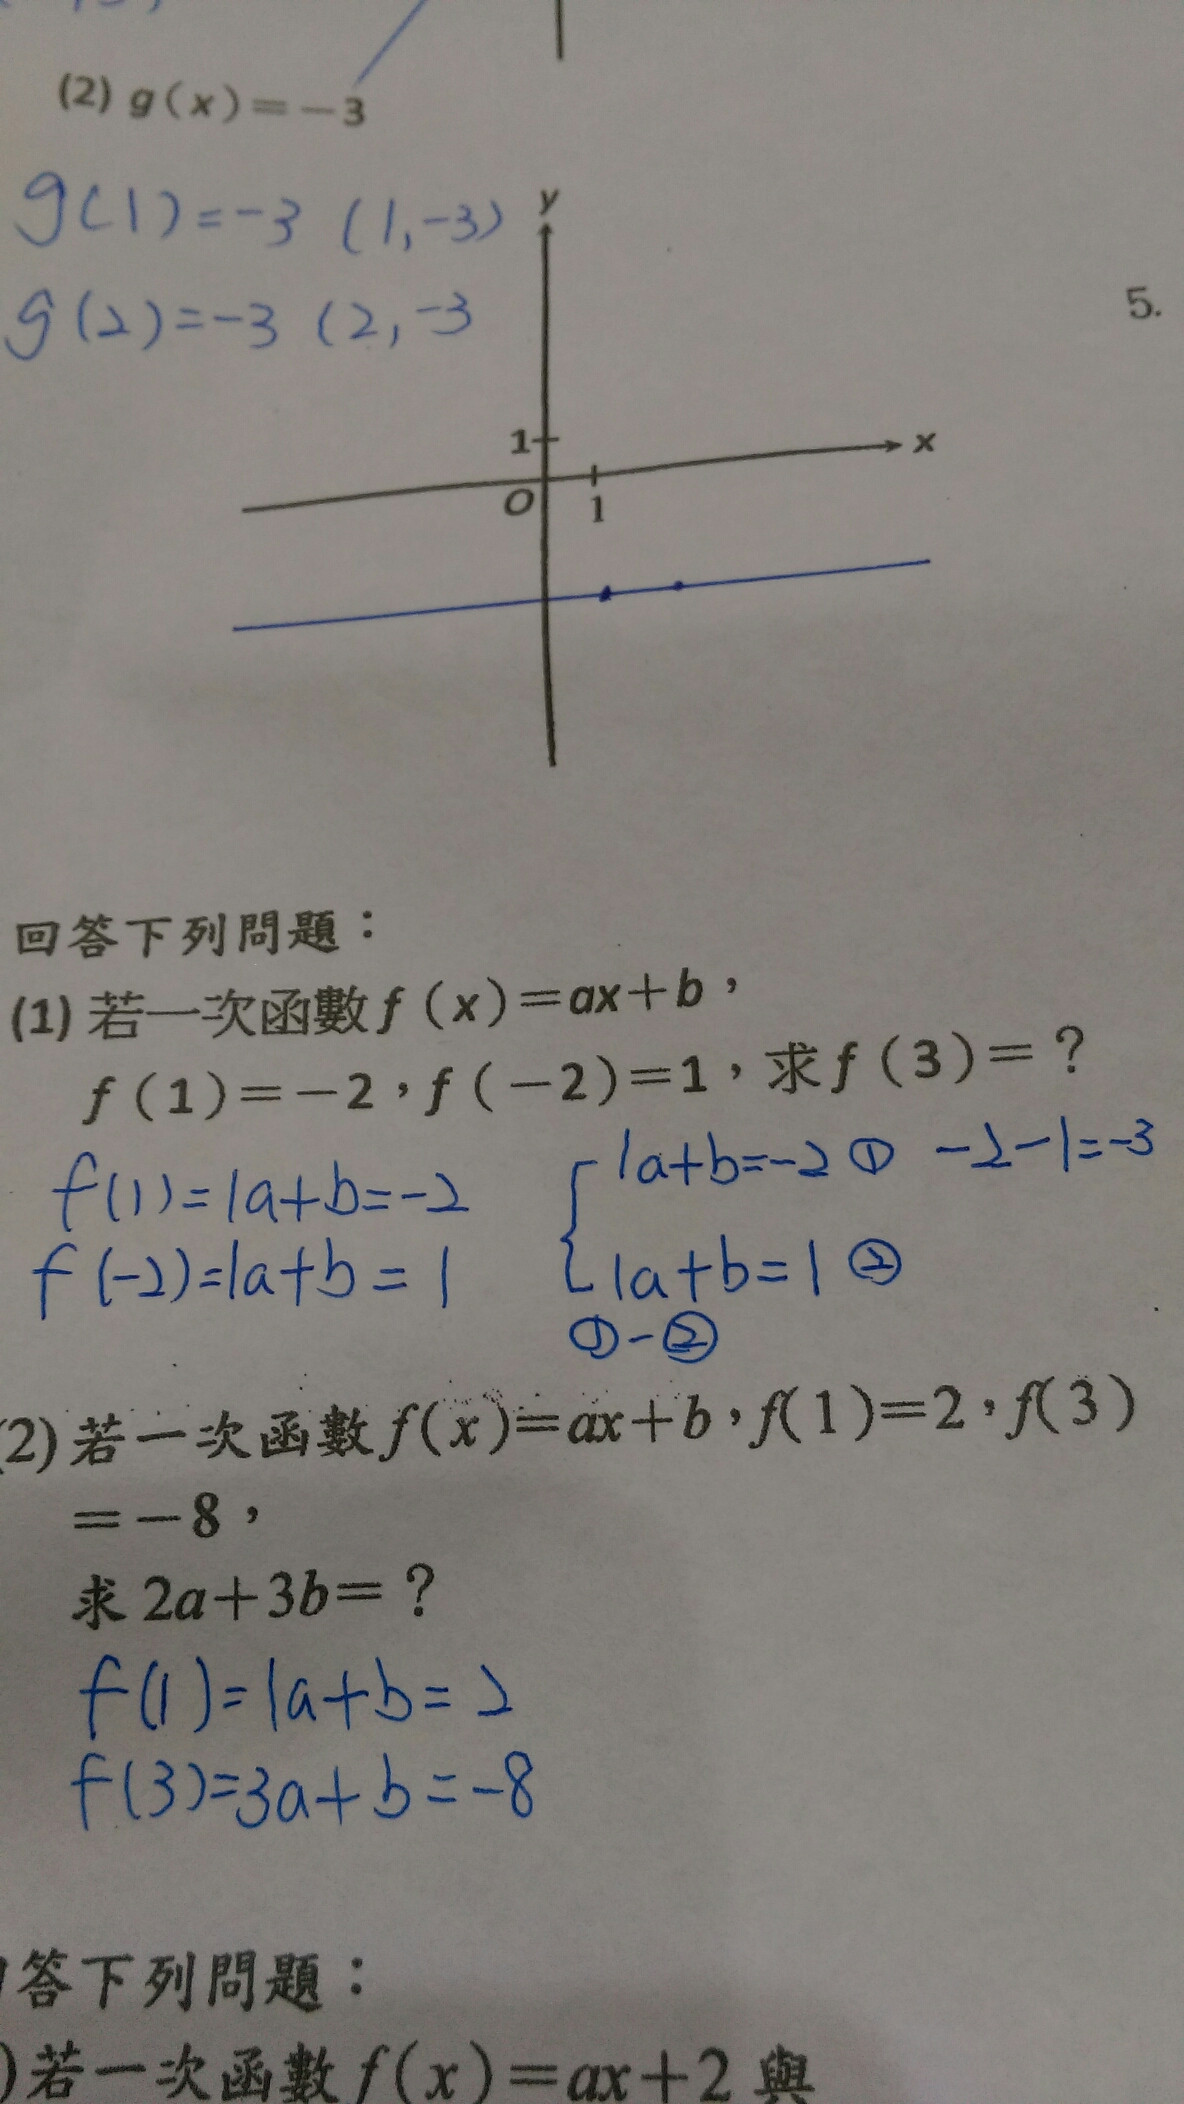 (2) g(x)=-3
g(1)=-3 (1,-3)
g(2)=-3 (2,-3
y
5.
1
x
O
1
回答下列問題：
(1) 若一次函數f(x)=ax+b，
f(1)=-2，f(-2)=1，求f(3)=？
f(1)=1a+b=-2
f(-2)=1a+b=1
1a+b=-2 ① -2-1=-3
1a+b=1 ②
①-②
2) 若一次函數f(x)=ax+b，f(1)=2，f(3)
=-8，
求2a+3b=？
f(1)=1a+b=2
f(3)=3a+b=-8
答下列問題：
)若一次函數f(x)=ax+2與